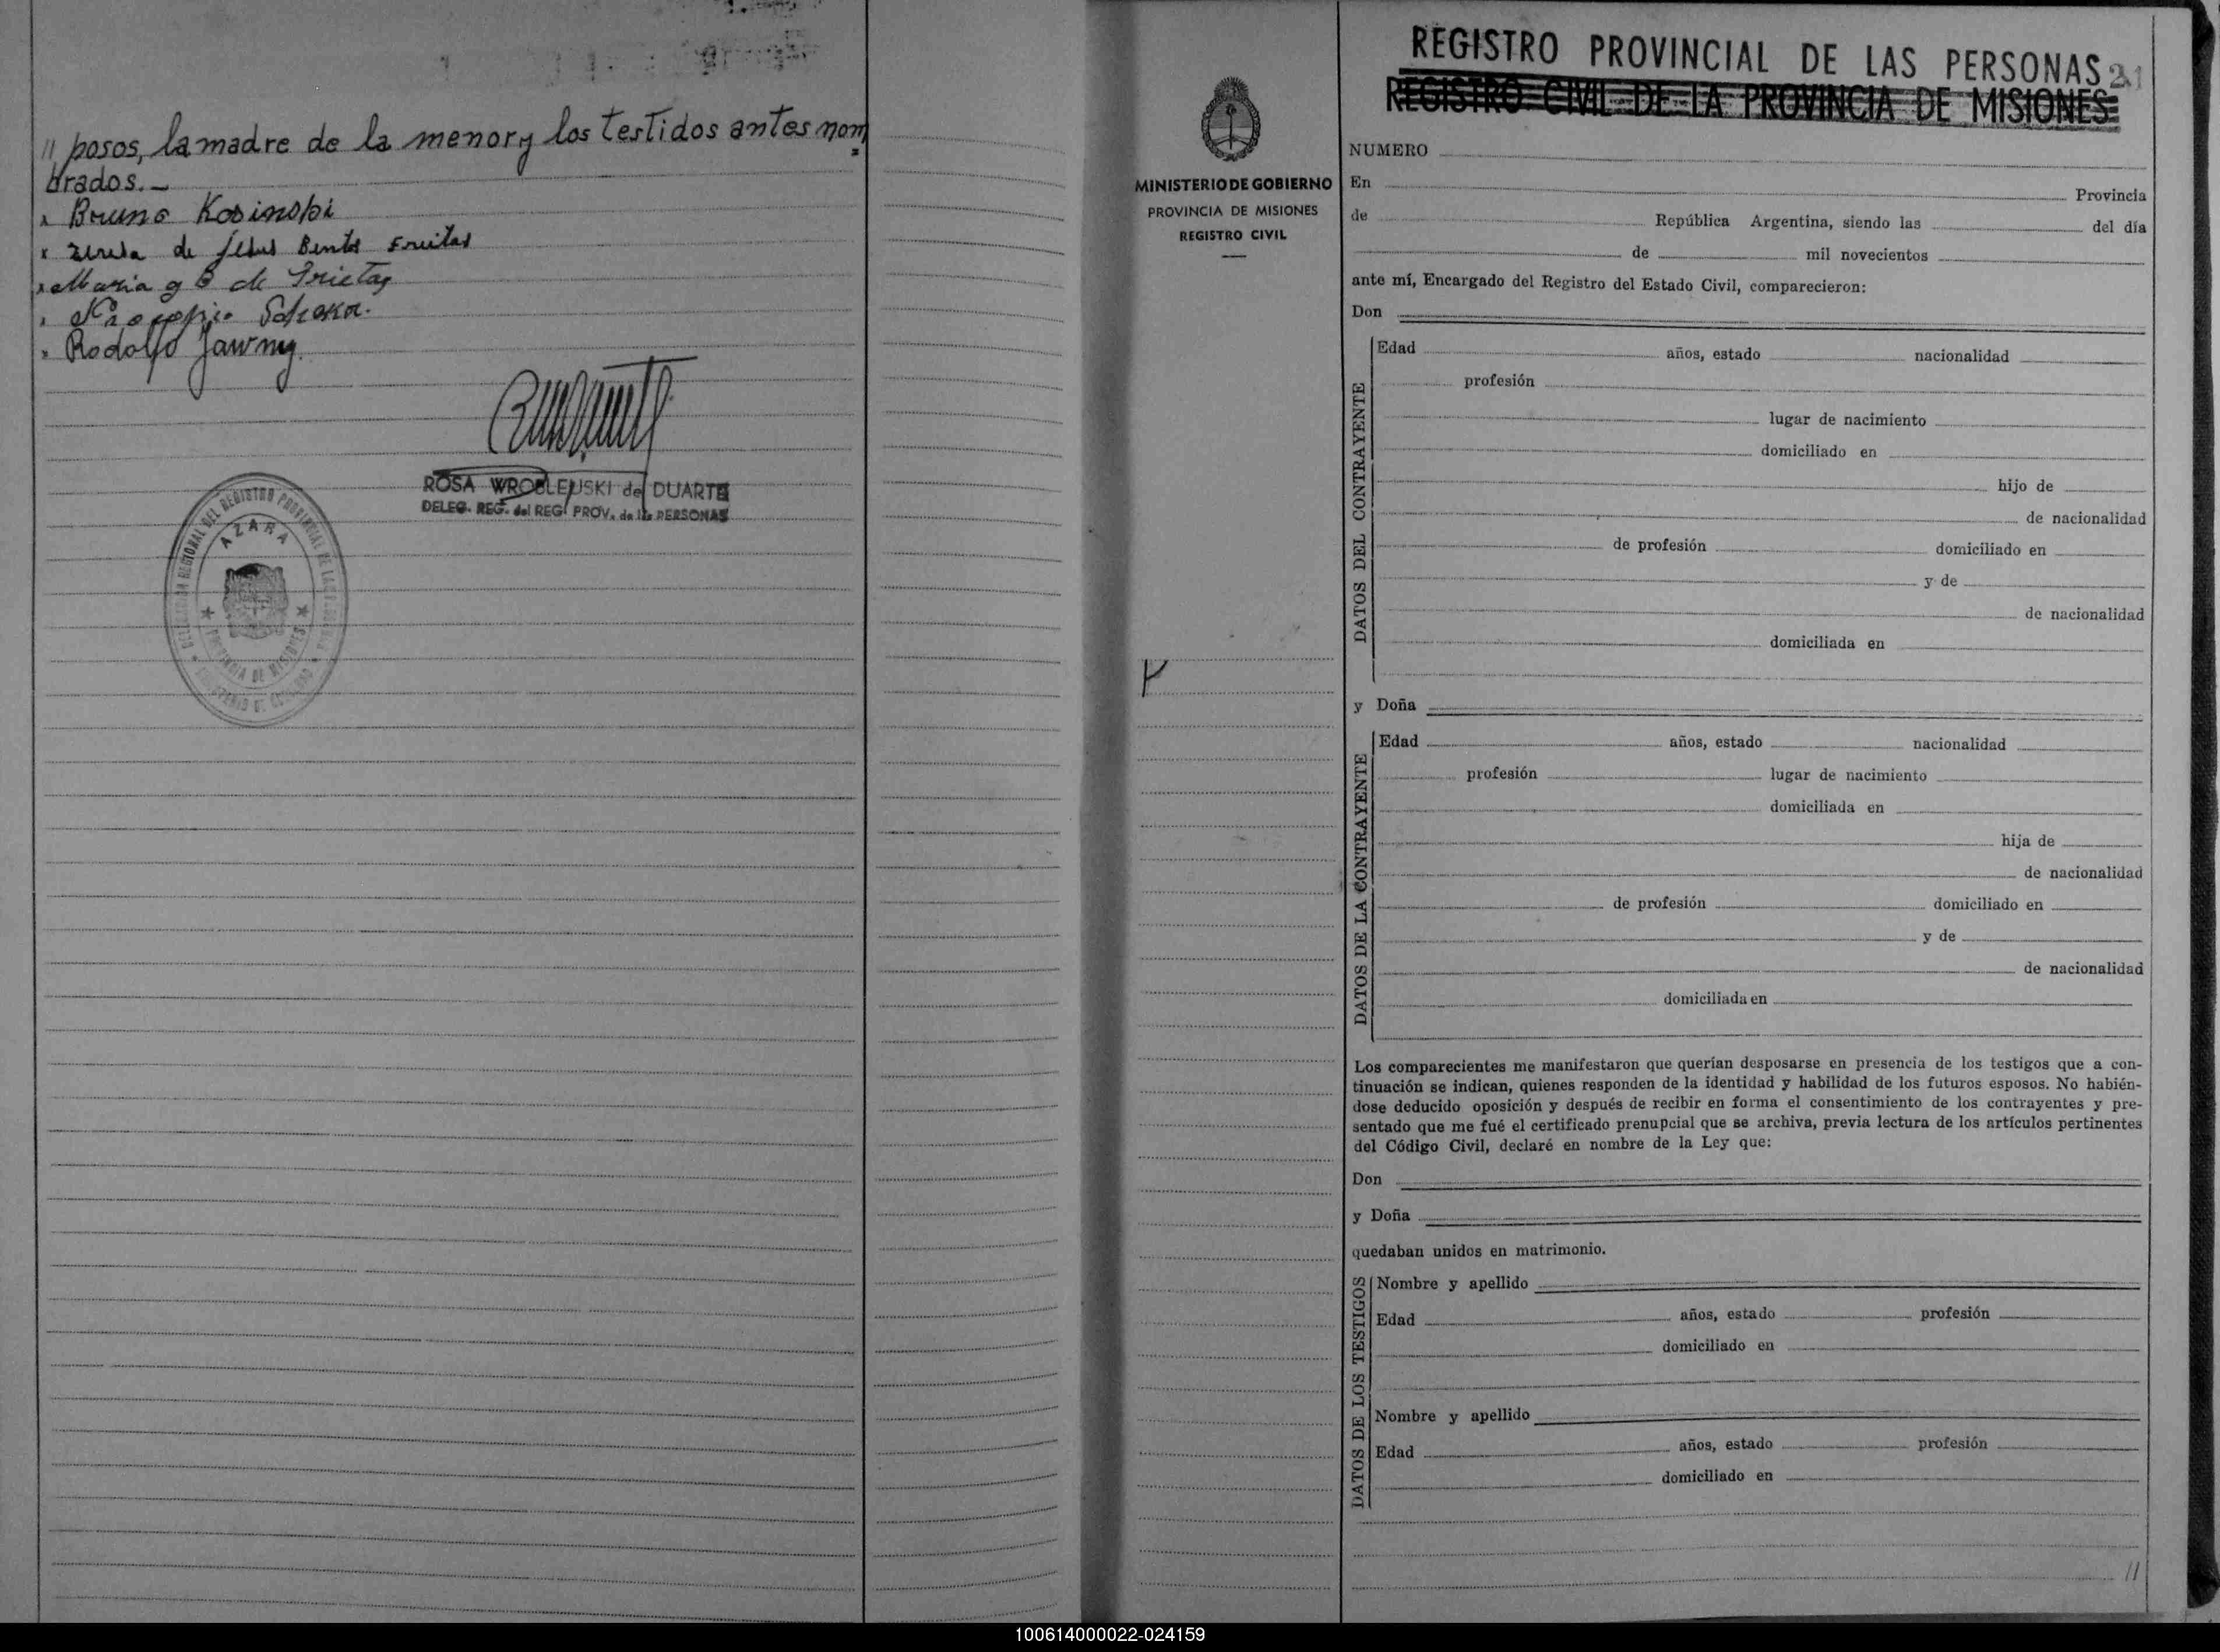 // posos, la madre de la menor y los testidos antes nom=
brados.—
x Bruno Kosinski
x Teresa de Jesus Bentos Freitas
x Maria g B de Frietas
x Procopio
x Rodolfo Jawny
ROSA WROBLEUSKI de DUARTE
DELEG. REG. del REG. PROV. de las PERSONAS
DELEGACION REGIONAL DEL REGISTRO PROVINCIAL DE LAS PERSONAS
AZARA
PROVINCIA DE MISIONES
MINISTERIO DE GOBIERNO
MINISTERIO DE GOBIERNO
PROVINCIA DE MISIONES
REGISTRO CIVIL
REGISTRO PROVINCIAL DE LAS PERSONAS 21
REGISTRO CIVIL DE LA PROVINCIA DE MISIONES
NUMERO
En Provincia
de República Argentina, siendo las del día
de mil novecientos
ante mí, Encargado del Registro del Estado Civil, comparecieron:
Don
DATOS DEL CONTRAYENTE
Edad años, estado nacionalidad
profesión
lugar de nacimiento
domiciliado en
hijo de
de nacionalidad
de profesión domiciliado en
y de
de nacionalidad
domiciliada en
y Doña
DATOS DE LA CONTRAYENTE
Edad años, estado nacionalidad
profesión lugar de nacimiento
domiciliada en
hija de
de nacionalidad
de profesión domiciliado en
y de
de nacionalidad
domiciliada en
Los comparecientes me manifestaron que querían desposarse en presencia de los testigos que a con-
tinuación se indican, quienes responden de la identidad y habilidad de los futuros esposos. No habién-
dose deducido oposición y después de recibir en forma el consentimiento de los contrayentes y pre-
sentado que me fué el certificado prenupcial que se archiva, previa lectura de los artículos pertinentes
del Código Civil, declaré en nombre de la Ley que:
Don
y Doña
quedaban unidos en matrimonio.
DATOS DE LOS TESTIGOS
Nombre y apellido
Edad años, estado profesión
domiciliado en
Nombre y apellido
Edad años, estado profesión
domiciliado en
//
100614000022-024159